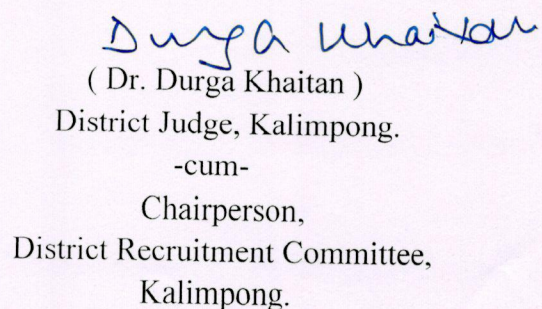 Durga Khaitan
( Dr. Durga Khaitan )
District Judge, Kalimpong.
-cum-
Chairperson,
District Recruitment Committee,
Kalimpong.